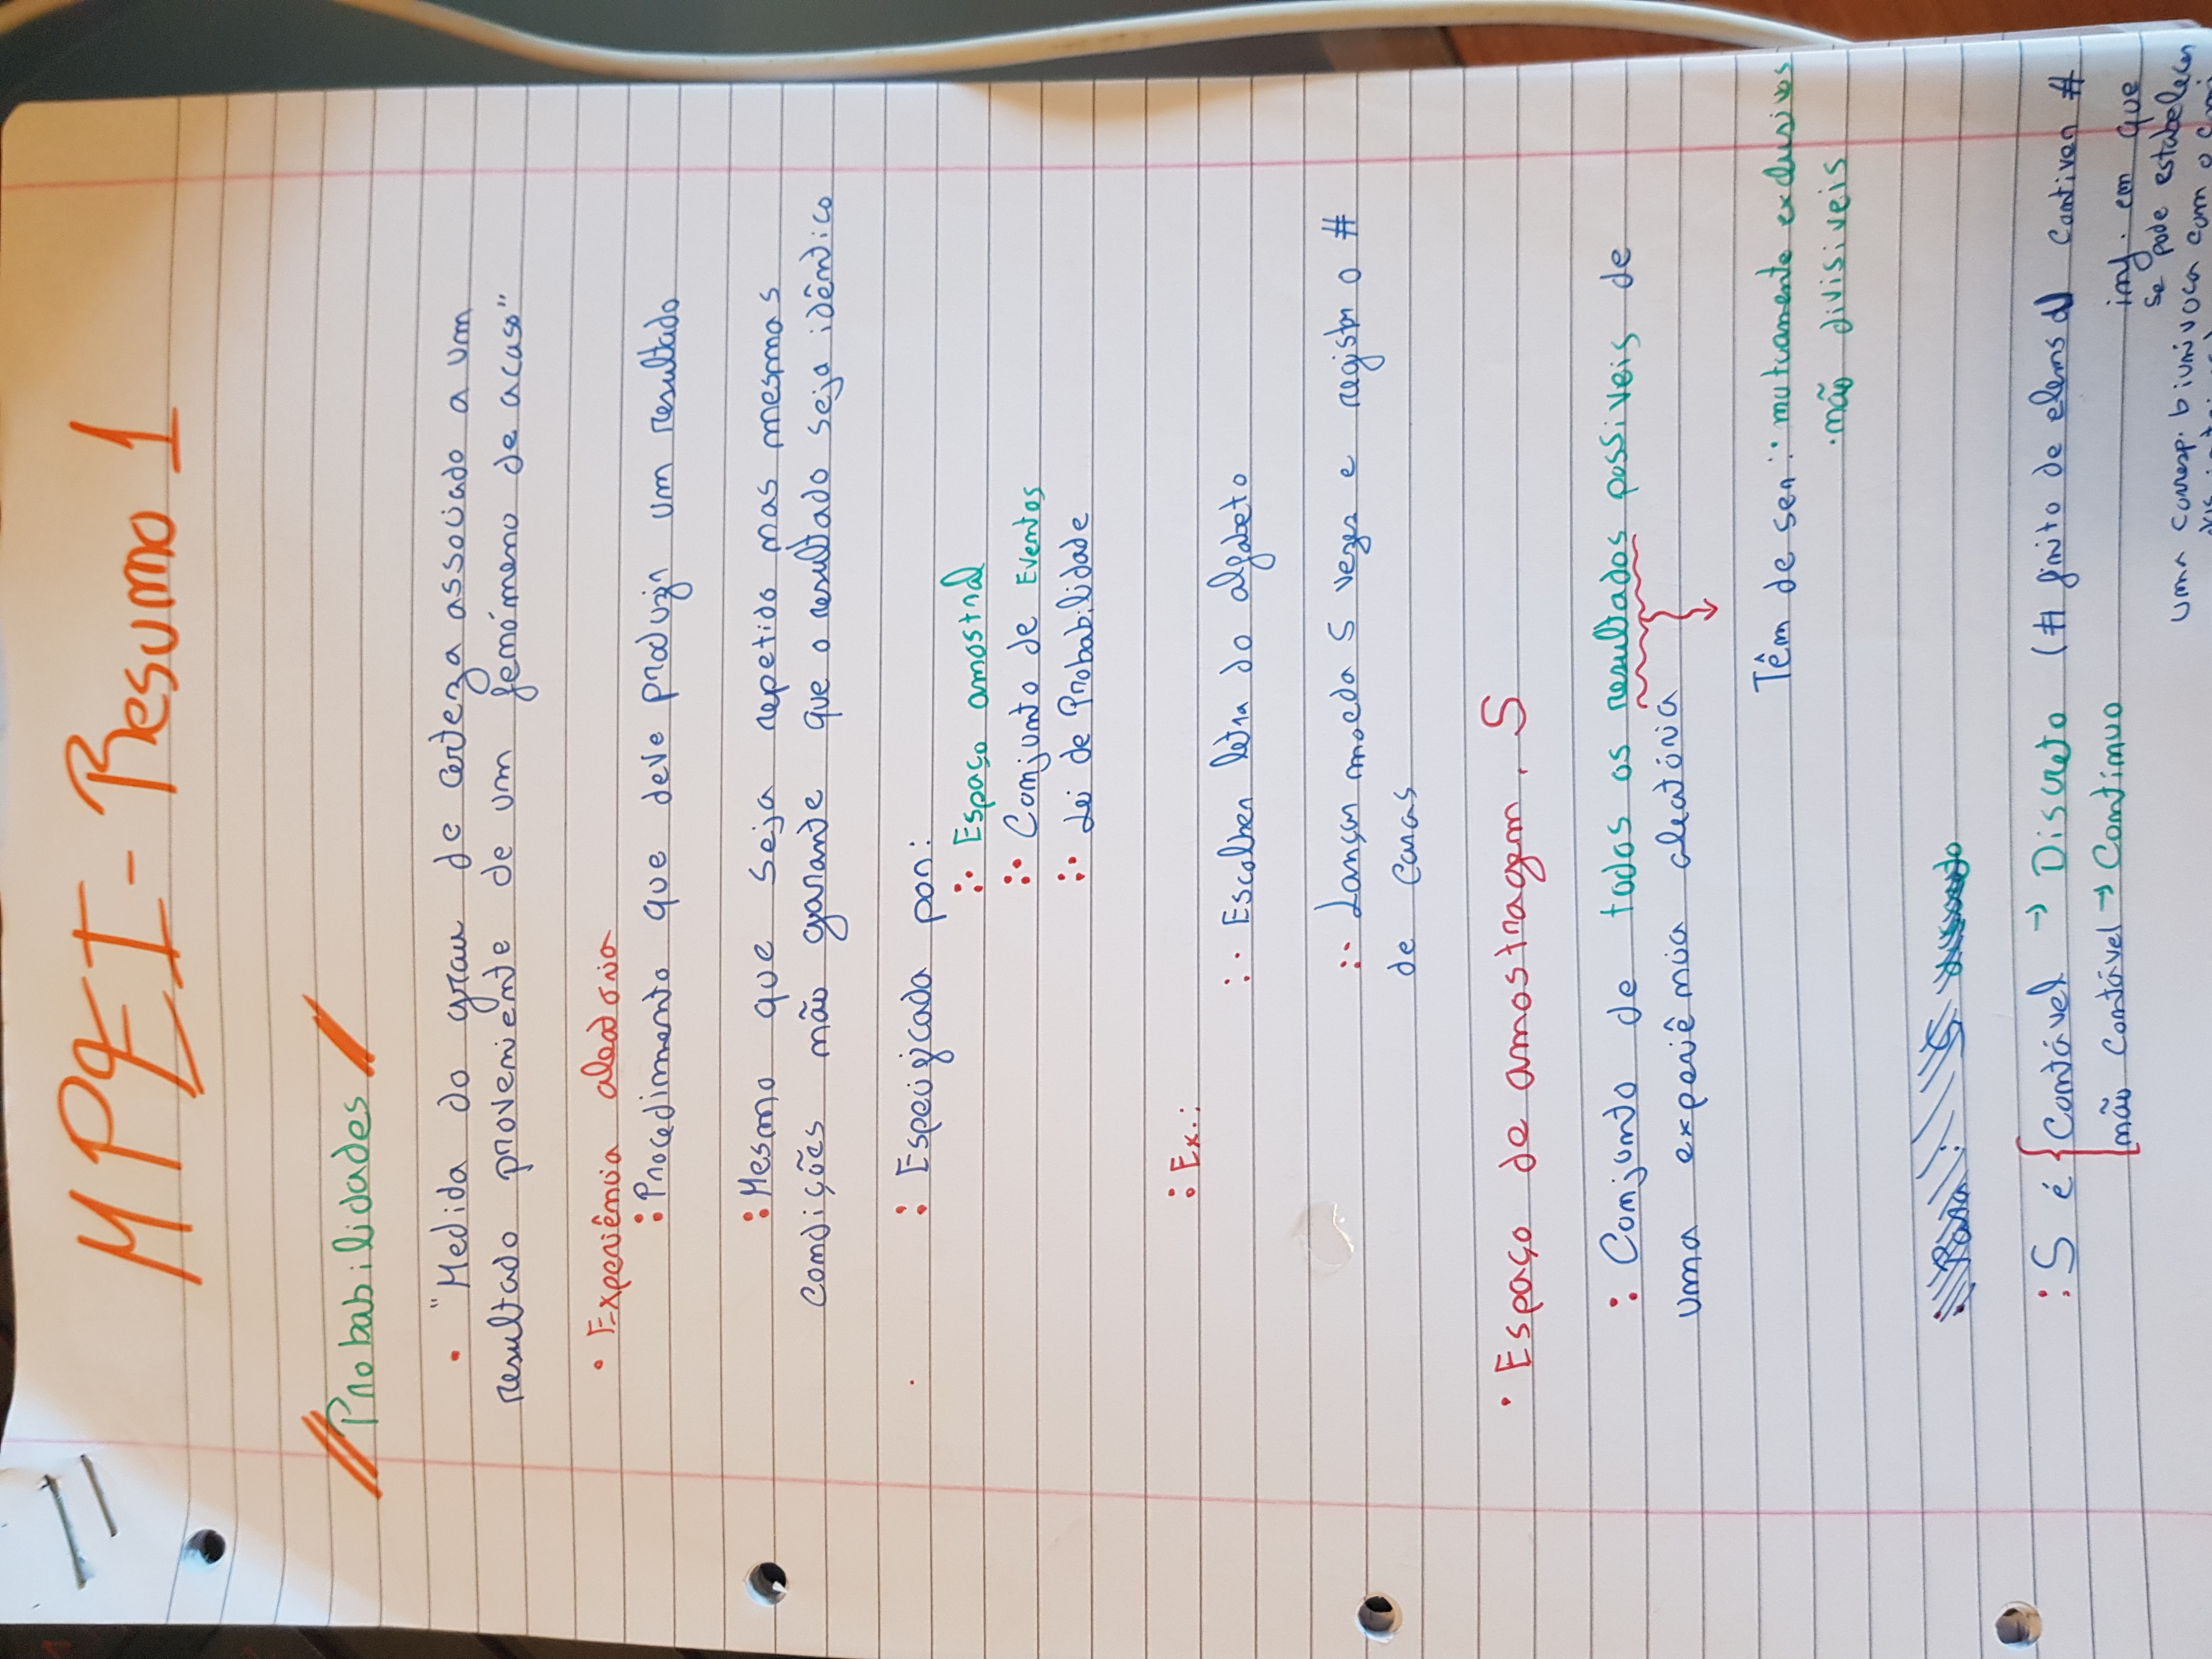 MPEI - Resumo 1
Probabilidades
• "Medida do grau de certeza associado a um
resultado proveniente de um fenómeno de acaso"
• Experiência aleatória
: Procedimento que deve produzir um resultado
: Mesmo que seja repetido nas mesmas
condições não garante que o resultado seja idêntico
: Especificada por:
:· Espaço amostral
:· Conjunto de Eventos
:· Lei de Probabilidade
: Ex.:
:· Escolher letra do alfabeto
:· Lançar moeda 5 vezes e registr o #
de caras
• Espaço de amostragem, S
: Conjunto de todos os resultados possiveis de
uma experiência aleatória
Têm de ser: · mutuamente exclusivos
· não divisiveis
: Para: S
: S é { Contável → Discreto (# finito de elems ou contiver #
não contável → Contínuo
inf. em que
se pode estabelecer
uma corresp. biunivoca com o